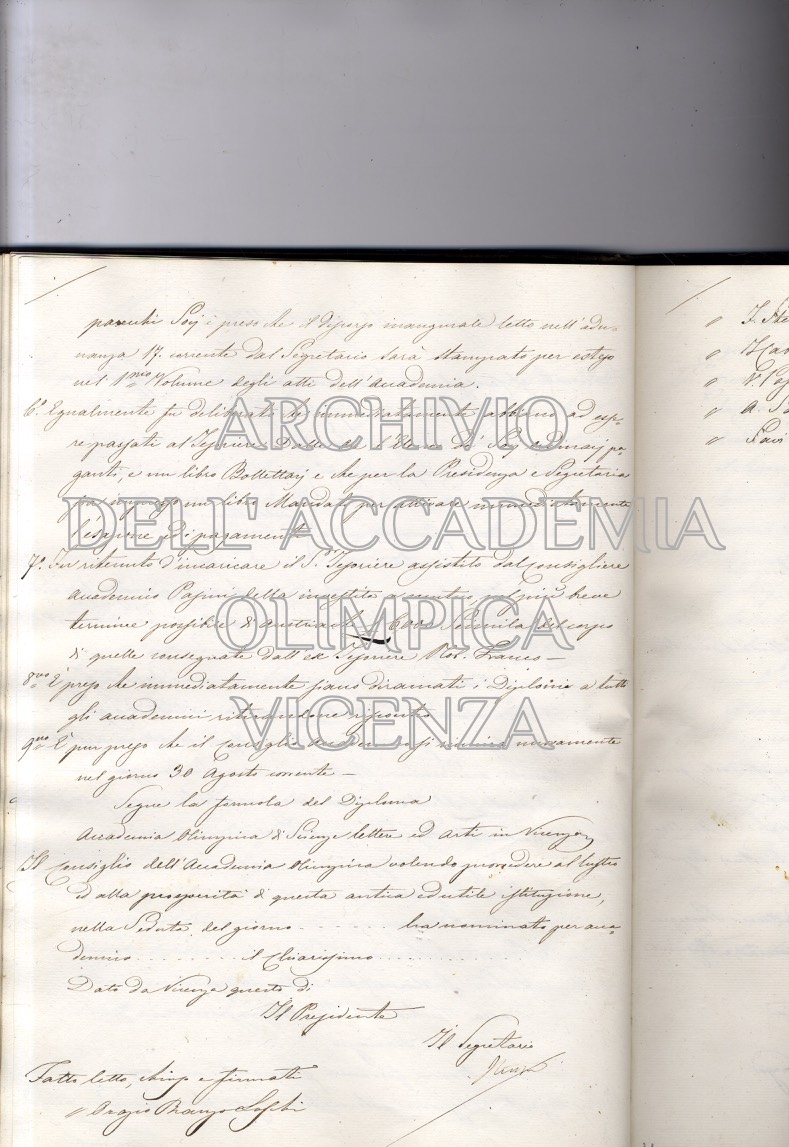 parecchi Socj è preso che il Discorso inaugurale letto nell'adu-
nanza 17. corrente dal Segretario sarà stampato per esteso
nel 1mo Volume degli atti dell'Accademia.
6° Egualmente fu deliberato che immediatamente abbiano ad esse-
re passati al Tesoriere Dalla l'Elenco de' Socj ordinarj pa-
ganti, e un libro Bollettarj e che per la Presidenza e Segretaria
un libro Mandati per attivare immediatamente
l'esazione ed i pagamenti
7° Fu ritenuto d'incaricare il Sr Tesoriere assistito dal Consigliere
accademico Pasini della investita a mutuo, nel più breve
termine possibile di Austriache 6000 Seimila del corpo
di quelle consegnate dall'ex Tesoriere Franco —
8vo È preso che immediatamente siano diramati i Diplomi a tutti
gli accademici ritirandone riscontro
9no È pur preso che il Consiglio Accademico si riunirà nuovamente
nel giorno 30 Agosto corrente —
Segue la formola del Diploma
Accademia Olimpica di Scienze lettere ed Arti in Vicenza
Il Consiglio dell'Accademia Olimpica volendo provvedere al lustro
ed alla prosperità di questa antica ed utile istituzione,
nella Seduta del giorno . . . . . . . ha nominato per acca-
demico . . . . . . . . . il Chiarissimo . . . . . . . . . .
Dato da Vicenza questo dì
Il Presidente
Il Segretario
Fatto letto, chiuso e firmato
" Orazio Branzo Loschi
"
"
" V. Pas
" A.
"
ARCHIVIO
DELL'ACCADEMIA
OLIMPICA
VICENZA